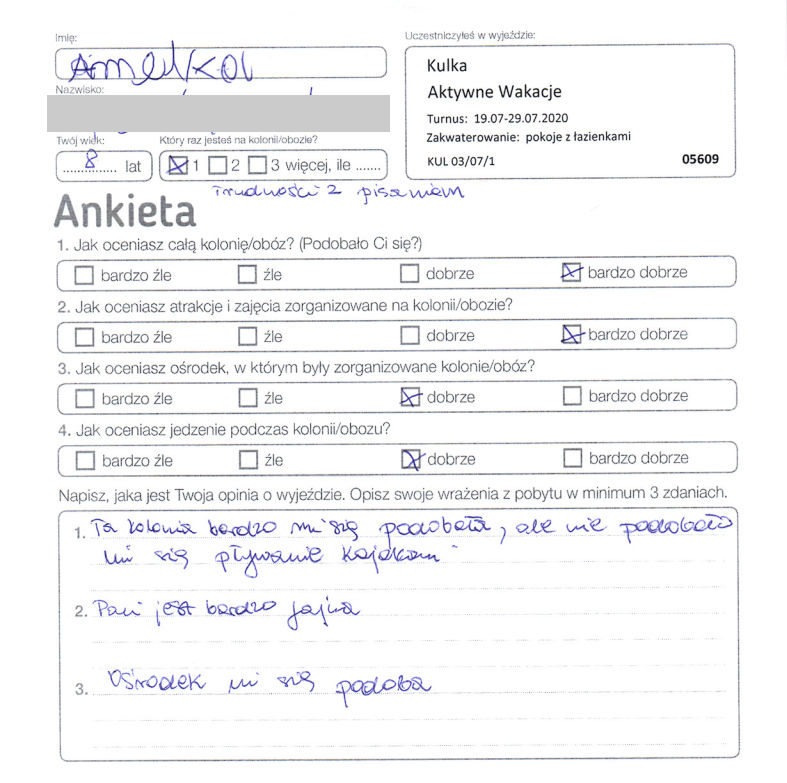 Imię:
Amelka
Nazwisko:
Twój wiek:
8 lat
Który raz jesteś na kolonii/obozie?
1 2 3 więcej, ile .......
Uczestniczyłeś w wyjeździe:
Kulka
Aktywne Wakacje
Turnus: 19.07-29.07.2020
Zakwaterowanie: pokoje z łazienkami
KUL 03/07/1 05609
trudności z pisaniem
Ankieta
1. Jak oceniasz całą kolonię/obóz? (Podobało Ci się?)
bardzo źle źle dobrze bardzo dobrze
2. Jak oceniasz atrakcje i zajęcia zorganizowane na kolonii/obozie?
bardzo źle źle dobrze bardzo dobrze
3. Jak oceniasz ośrodek, w którym były zorganizowane kolonie/obóz?
bardzo źle źle dobrze bardzo dobrze
4. Jak oceniasz jedzenie podczas kolonii/obozu?
bardzo źle źle dobrze bardzo dobrze
Napisz, jaka jest Twoja opinia o wyjeździe. Opisz swoje wrażenia z pobytu w minimum 3 zdaniach.
1. Ta kolonia bardzo mi się podobała, ale nie podobało
mi się pływanie kajakami
2. Pani jest bardzo fajna
3. Ośrodek mi się podoba